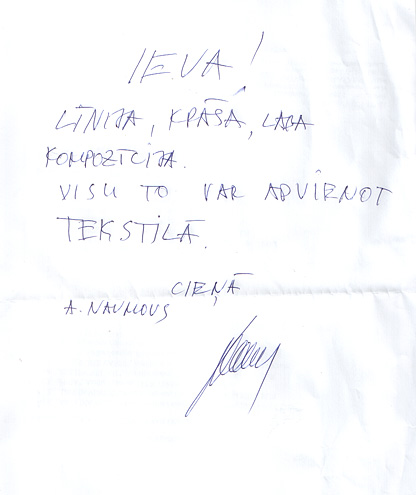 IEVA!
LĪNIJA, KRĀSA, LABA
KOMPOZĪCIJA.
VISU TO VAR APVIENOT
TEKSTILĀ.
CIEŅĀ
A. NAUMOVS